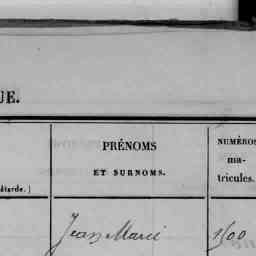 UE.
PRÉNOMS
ET SURNOMS.
NUMÉROS
ma-
tricules.
âtarde.)
Jean Marie
1500